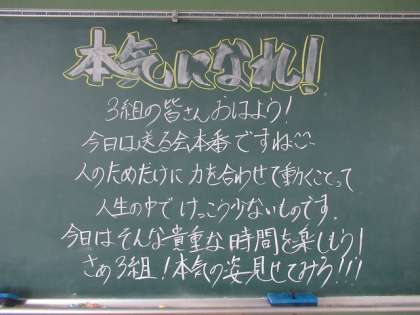 本気になれ!
3組の皆さんおはよう!
今日は送る会本番ですね
人のためだけに力を合わせて動くことって
人生の中でけっこう少ないものです.
今日はそんな貴重な時間を楽しもう!
さぁ3組!本気の姿見せてみろ!!!